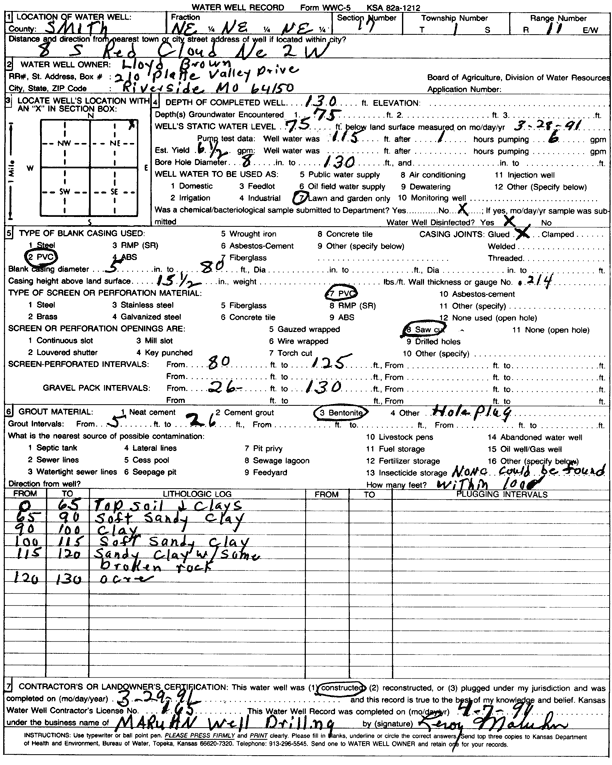 WATER WELL RECORD Form WWC-5 KSA 82a-1212
1 LOCATION OF WATER WELL: Fraction Section Number Township Number Range Number
County: SMITH NE ¼ NE ¼ NE ¼ 17 T 1 S R 11 E/W
Distance and direction from nearest town or city street address of well if located within city?
8 S Red Cloud Ne 2 W
2 WATER WELL OWNER: Lloyd Brown
RR#, St. Address, Box #: 210 Platte Valley Drive Board of Agriculture, Division of Water Resources
City, State, ZIP Code : Riverside MO 64150 Application Number:
3 LOCATE WELL'S LOCATION WITH AN "X" IN SECTION BOX: 4 DEPTH OF COMPLETED WELL 130 ft. ELEVATION:
Depth(s) Groundwater Encountered 1. 75 ft. 2. ft. 3. ft.
WELL'S STATIC WATER LEVEL 75 ft. below land surface measured on mo/day/yr 3-28-91
Pump test data: Well water was 115 ft. after 1 hours pumping 6 gpm
Est. Yield 6 1/2 gpm: Well water was ft. after hours pumping gpm
Bore Hole Diameter 8 in. to 130 ft., and in. to ft.
WELL WATER TO BE USED AS: 5 Public water supply 8 Air conditioning 11 Injection well
1 Domestic 3 Feedlot 6 Oil field water supply 9 Dewatering 12 Other (Specify below)
2 Irrigation 4 Industrial 7 Lawn and garden only 10 Monitoring well
Was a chemical/bacteriological sample submitted to Department? Yes No X ; If yes, mo/day/yr sample was submitted Water Well Disinfected? Yes X No
N
NW NE
W E
SW SE
S
1 Mile
5 TYPE OF BLANK CASING USED: 5 Wrought iron 8 Concrete tile CASING JOINTS: Glued X Clamped
1 Steel 3 RMP (SR) 6 Asbestos-Cement 9 Other (specify below) Welded
2 PVC 4 ABS 7 Fiberglass Threaded
Blank casing diameter 5 in. to 80 ft., Dia in. to ft., Dia in. to ft.
Casing height above land surface 15 1/2 in., weight lbs./ft. Wall thickness or gauge No. .214
TYPE OF SCREEN OR PERFORATION MATERIAL: 7 PVC 10 Asbestos-cement
1 Steel 3 Stainless steel 5 Fiberglass 8 RMP (SR) 11 Other (specify)
2 Brass 4 Galvanized steel 6 Concrete tile 9 ABS 12 None used (open hole)
SCREEN OR PERFORATION OPENINGS ARE: 5 Gauzed wrapped 8 Saw cut 11 None (open hole)
1 Continuous slot 3 Mill slot 6 Wire wrapped 9 Drilled holes
2 Louvered shutter 4 Key punched 7 Torch cut 10 Other (specify)
SCREEN-PERFORATED INTERVALS: From 80 ft. to 125 ft., From ft. to ft.
From ft. to ft., From ft. to ft.
GRAVEL PACK INTERVALS: From 26 ft. to 130 ft., From ft. to ft.
From ft. to ft., From ft. to ft.
6 GROUT MATERIAL: 1 Neat cement 2 Cement grout 3 Bentonite 4 Other Hole Plug
Grout Intervals: From 5 ft. to 26 ft., From ft. to ft., From ft. to ft.
What is the nearest source of possible contamination: 10 Livestock pens 14 Abandoned water well
1 Septic tank 4 Lateral lines 7 Pit privy 11 Fuel storage 15 Oil well/Gas well
2 Sewer lines 5 Cess pool 8 Sewage lagoon 12 Fertilizer storage 16 Other (specify below)
3 Watertight sewer lines 6 Seepage pit 9 Feedyard 13 Insecticide storage None could be found
Direction from well? How many feet? within 1000
FROM TO LITHOLOGIC LOG FROM TO PLUGGING INTERVALS
0 65 Top soil & Clays
65 90 Soft Sandy Clay
90 100 Clay
100 115 Soft Sandy Clay
115 120 Sandy Clay w/ some
broken rock
120 130 ocre
7 CONTRACTOR'S OR LANDOWNER'S CERTIFICATION: This water well was (1) constructed, (2) reconstructed, or (3) plugged under my jurisdiction and was
completed on (mo/day/year) 3-29-91 and this record is true to the best of my knowledge and belief. Kansas
Water Well Contractor's License No. 165 This Water Well Record was completed on (mo/day/yr)
under the business name of MARUHN Well Drilling by (signature) Leroy Maruhn
INSTRUCTIONS: Use typewriter or ball point pen. PLEASE PRESS FIRMLY and PRINT clearly. Please fill in blanks, underline or circle the correct answers. Send top three copies to Kansas Department
of Health and Environment, Bureau of Water, Topeka, Kansas 66620-7320. Telephone: 913-296-5545. Send one to WATER WELL OWNER and retain one for your records.